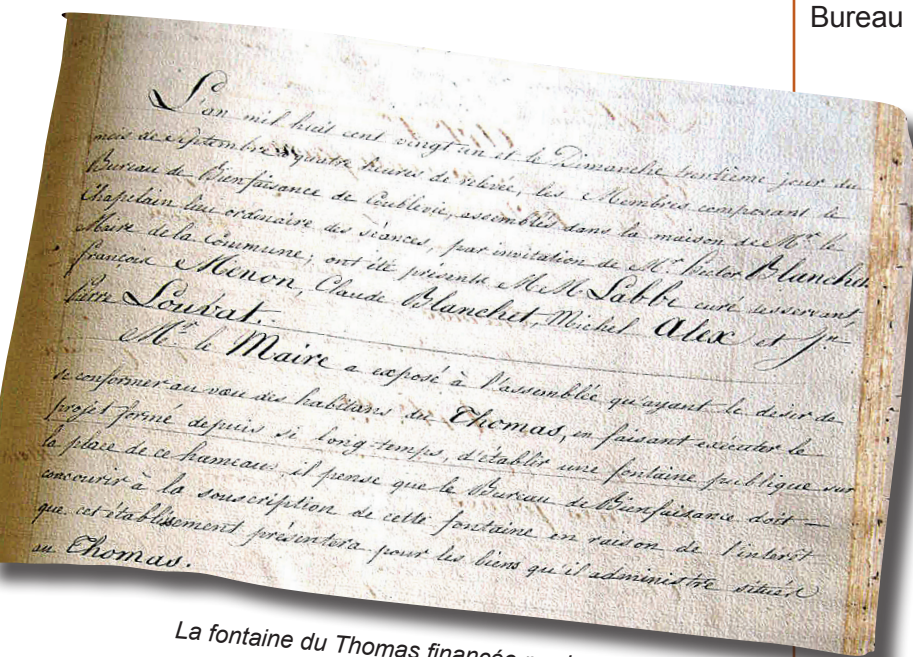 Bureau
L'an mil huit cent vingt un et le Dimanche trentieme jour du
mois de septembre à quatre heures de relevée, les Membres composant le
Bureau de Bienfaisance de Coublevie, assemblés dans la maison de Mr. le
Chapelain lieu ordinaire des séances, par invitation de Mr. Victor Blanchet
Maire de la Commune; ont été présents MM Labbe curé desservant,
françois Menon, Claude Blanchet, Michel Alex et Jn-
Pierre Louvat.
Mr. le Maire a exposé à l'assemblée qu'ayant le desir de
se conformer au vœu des habitans du Thomas, en faisant exécuter le
projet formé depuis si long-temps, d'établir une fontaine publique sur
la place de ce hameau, il pense que le Bureau de Bienfaisance doit —
concourir à la souscription de cette fontaine en raison de l'interêt
que cet établissement présentera pour les biens qu'il administre situés
au Thomas.
La fontaine du Thomas financée